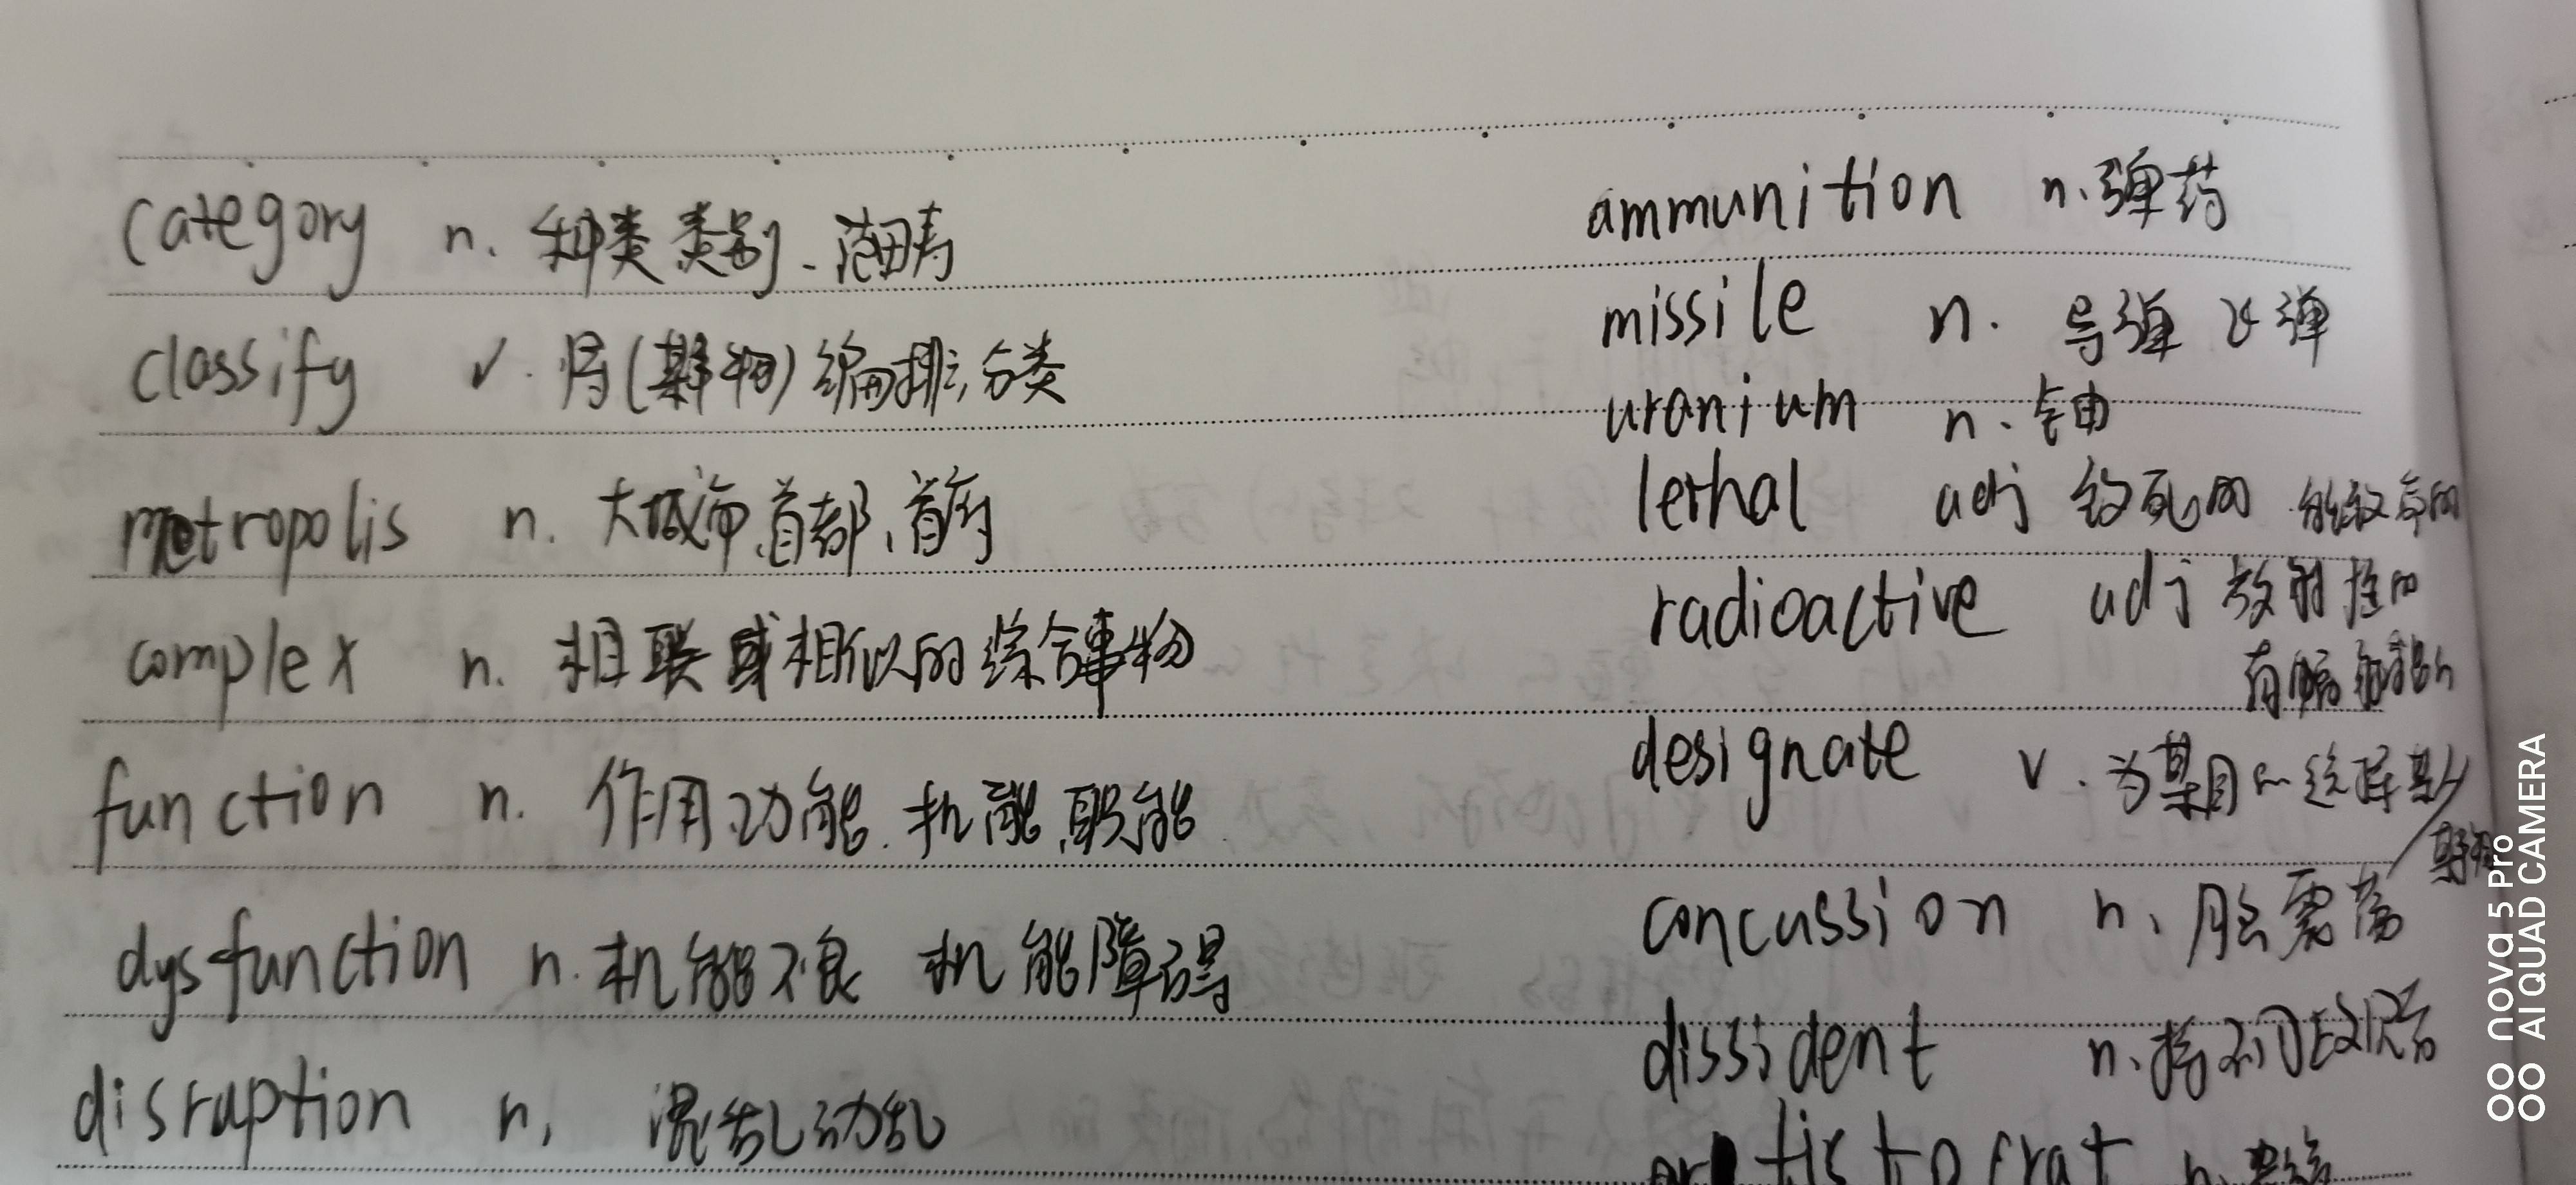 category n. 种类 类别、范畴
classify v. 将(某事物)编排,分类
metropolis n. 大城市、首都、首府
complex n. 相联或相似的综合事物
function n. 作用 功能、机能、职能
dysfunction n. 机能不良 机能障碍
disruption n. 混乱 动乱
ammunition n. 弹药
missile n. 导弹 飞弹
uranium n. 铀
lethal adj 致死的 能致命的
radioactive adj 放射性的
有辐射
designate v. 为某目的选择某人/
某物
concussion n. 脑震荡
dissident n. 持不同政见者
n.
nova 5 Pro
AI QUAD CAMERA